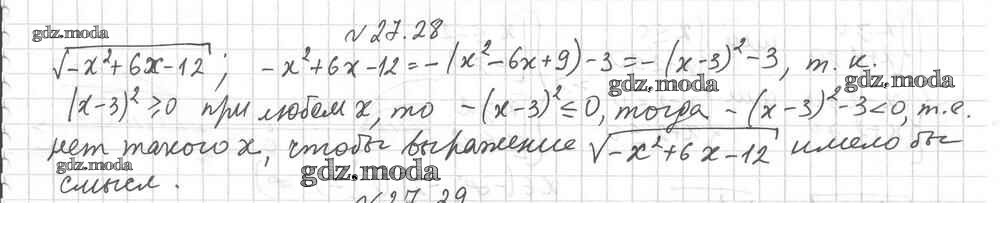 gdz.moda
№27.28
√(-x²+6x-12); -x²+6x-12=-(x²-6x+9)-3=-(x-3)²-3, т. к.
gdz.moda gdz.moda
(x-3)²⩾0 при любем x, то -(x-3)²≤0, тогда -(x-3)²-3<0, т.е.
нет такого x, чтобы выражение √(-x²+6x-12) имело бы
gdz.moda gdz.moda
смысл.
№27.29